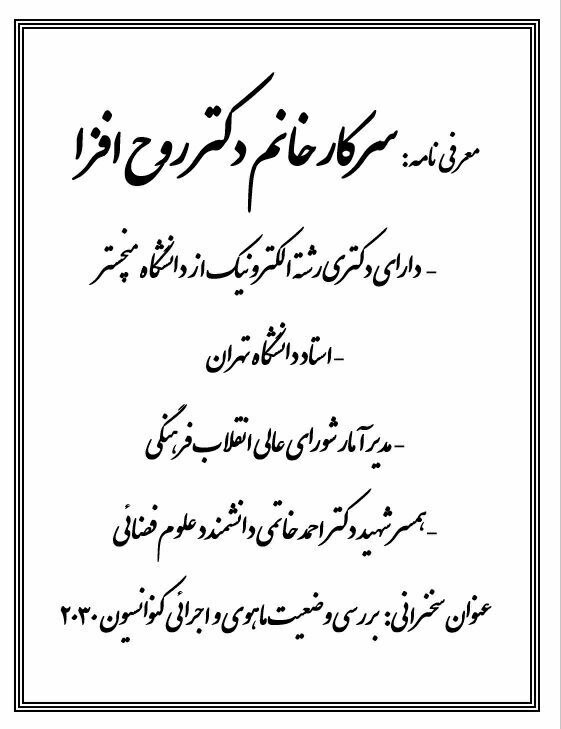 معرفی نامه: سرکار خانم دکتر روح افزا
- دارای دکتری رشته الکترونیک از دانشگاه منچستر
- استاد دانشگاه تهران
- مدیر آمار شورای عالی انقلاب فرهنگی
- همسر شهید دکتر احمد خاتمی دانشمند علوم فضائی
عنوان سخنرانی: بررسی وضعیت ماهوی و اجرائی کنوانسیون ۲۰۳۰